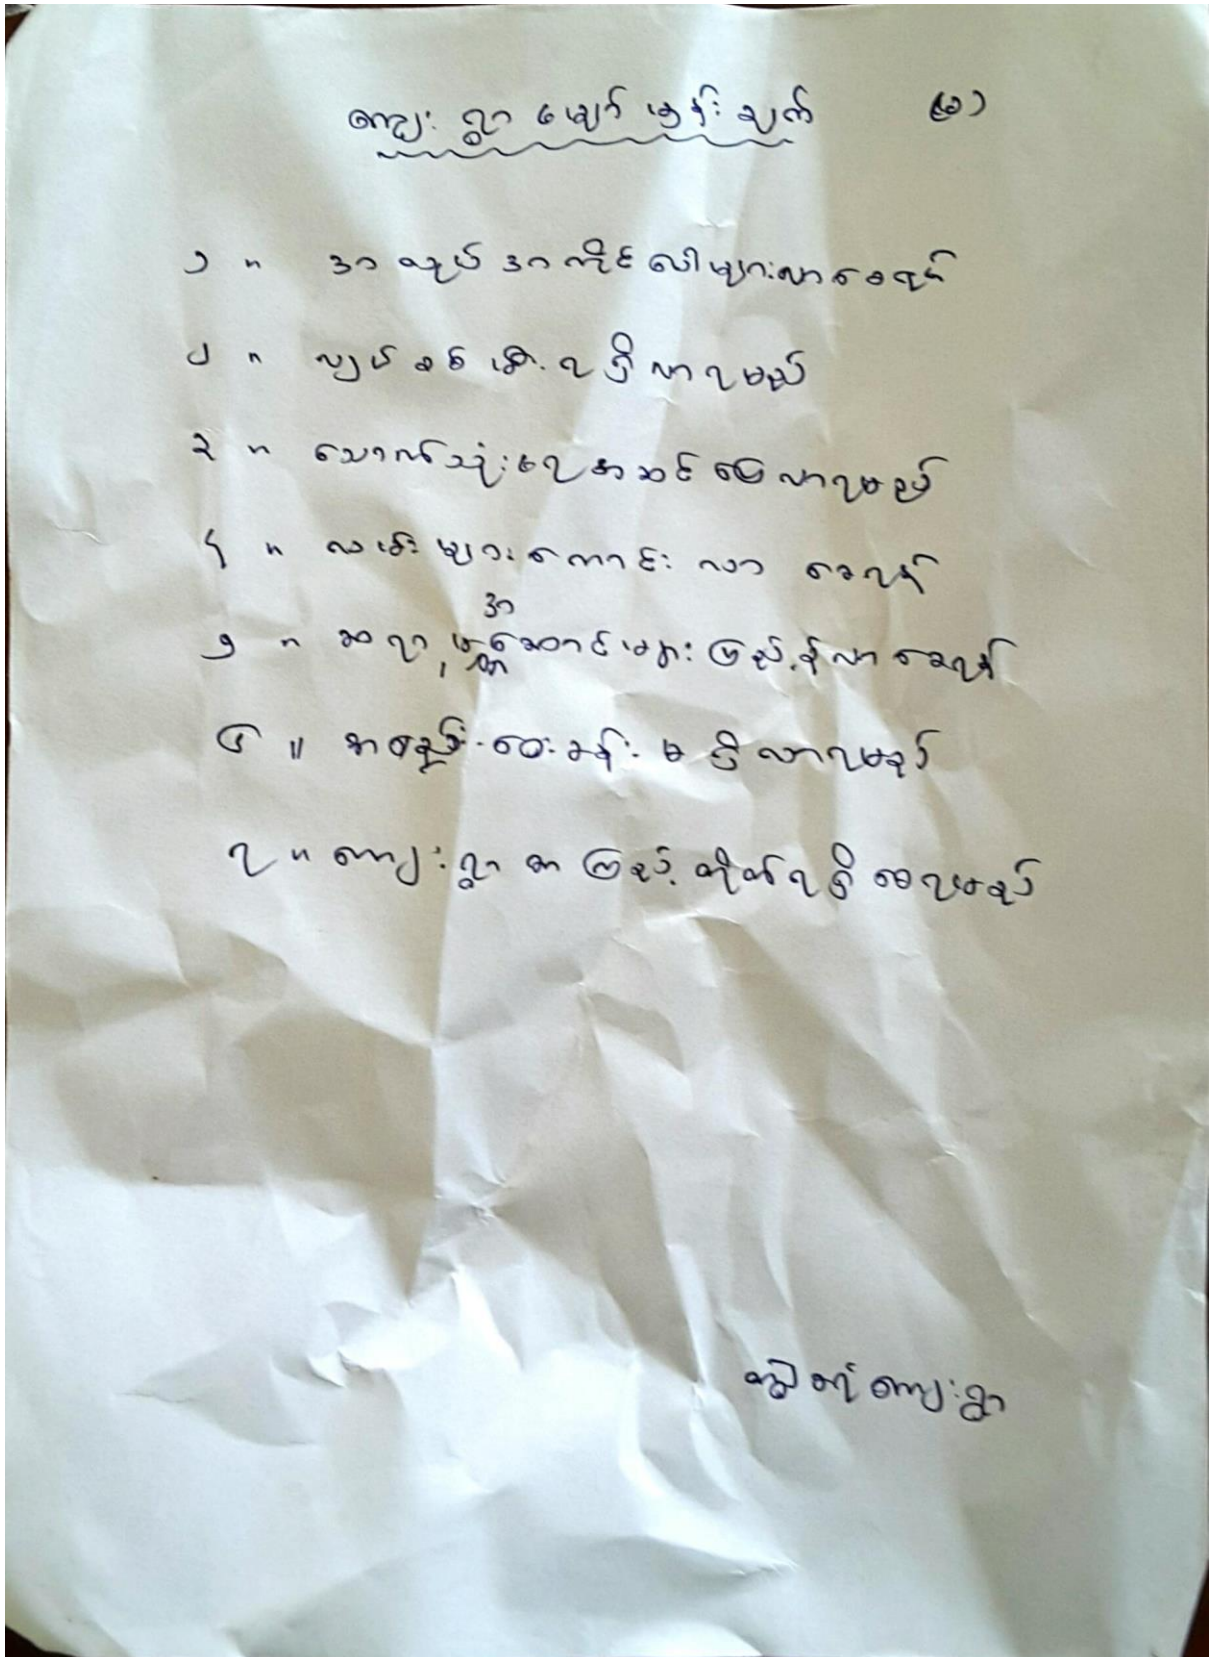 ကျေးရွာ မျှော်မှန်းချက် (၃)
၁ ။ အလုပ်အကိုင်ပေါများလာစေရန်
၂ ။ လျှပ်စစ်မီးရရှိလာရမည်
၃ ။ သောက်သုံးရေအဆင်ပြေလာရမည်
၄ ။ လမ်းများကောင်းလာစေရန်
၅ ။ ဆရာ၊ အဆောင်များပြည့်စုံလာစေရန်
၆ ။ အစည်းဝေးခန်းမရှိလာရမည်
၇ ။ ကျေးရွာစာကြည့်တိုက်ရှိစေရမည်
ကျေးရွာ